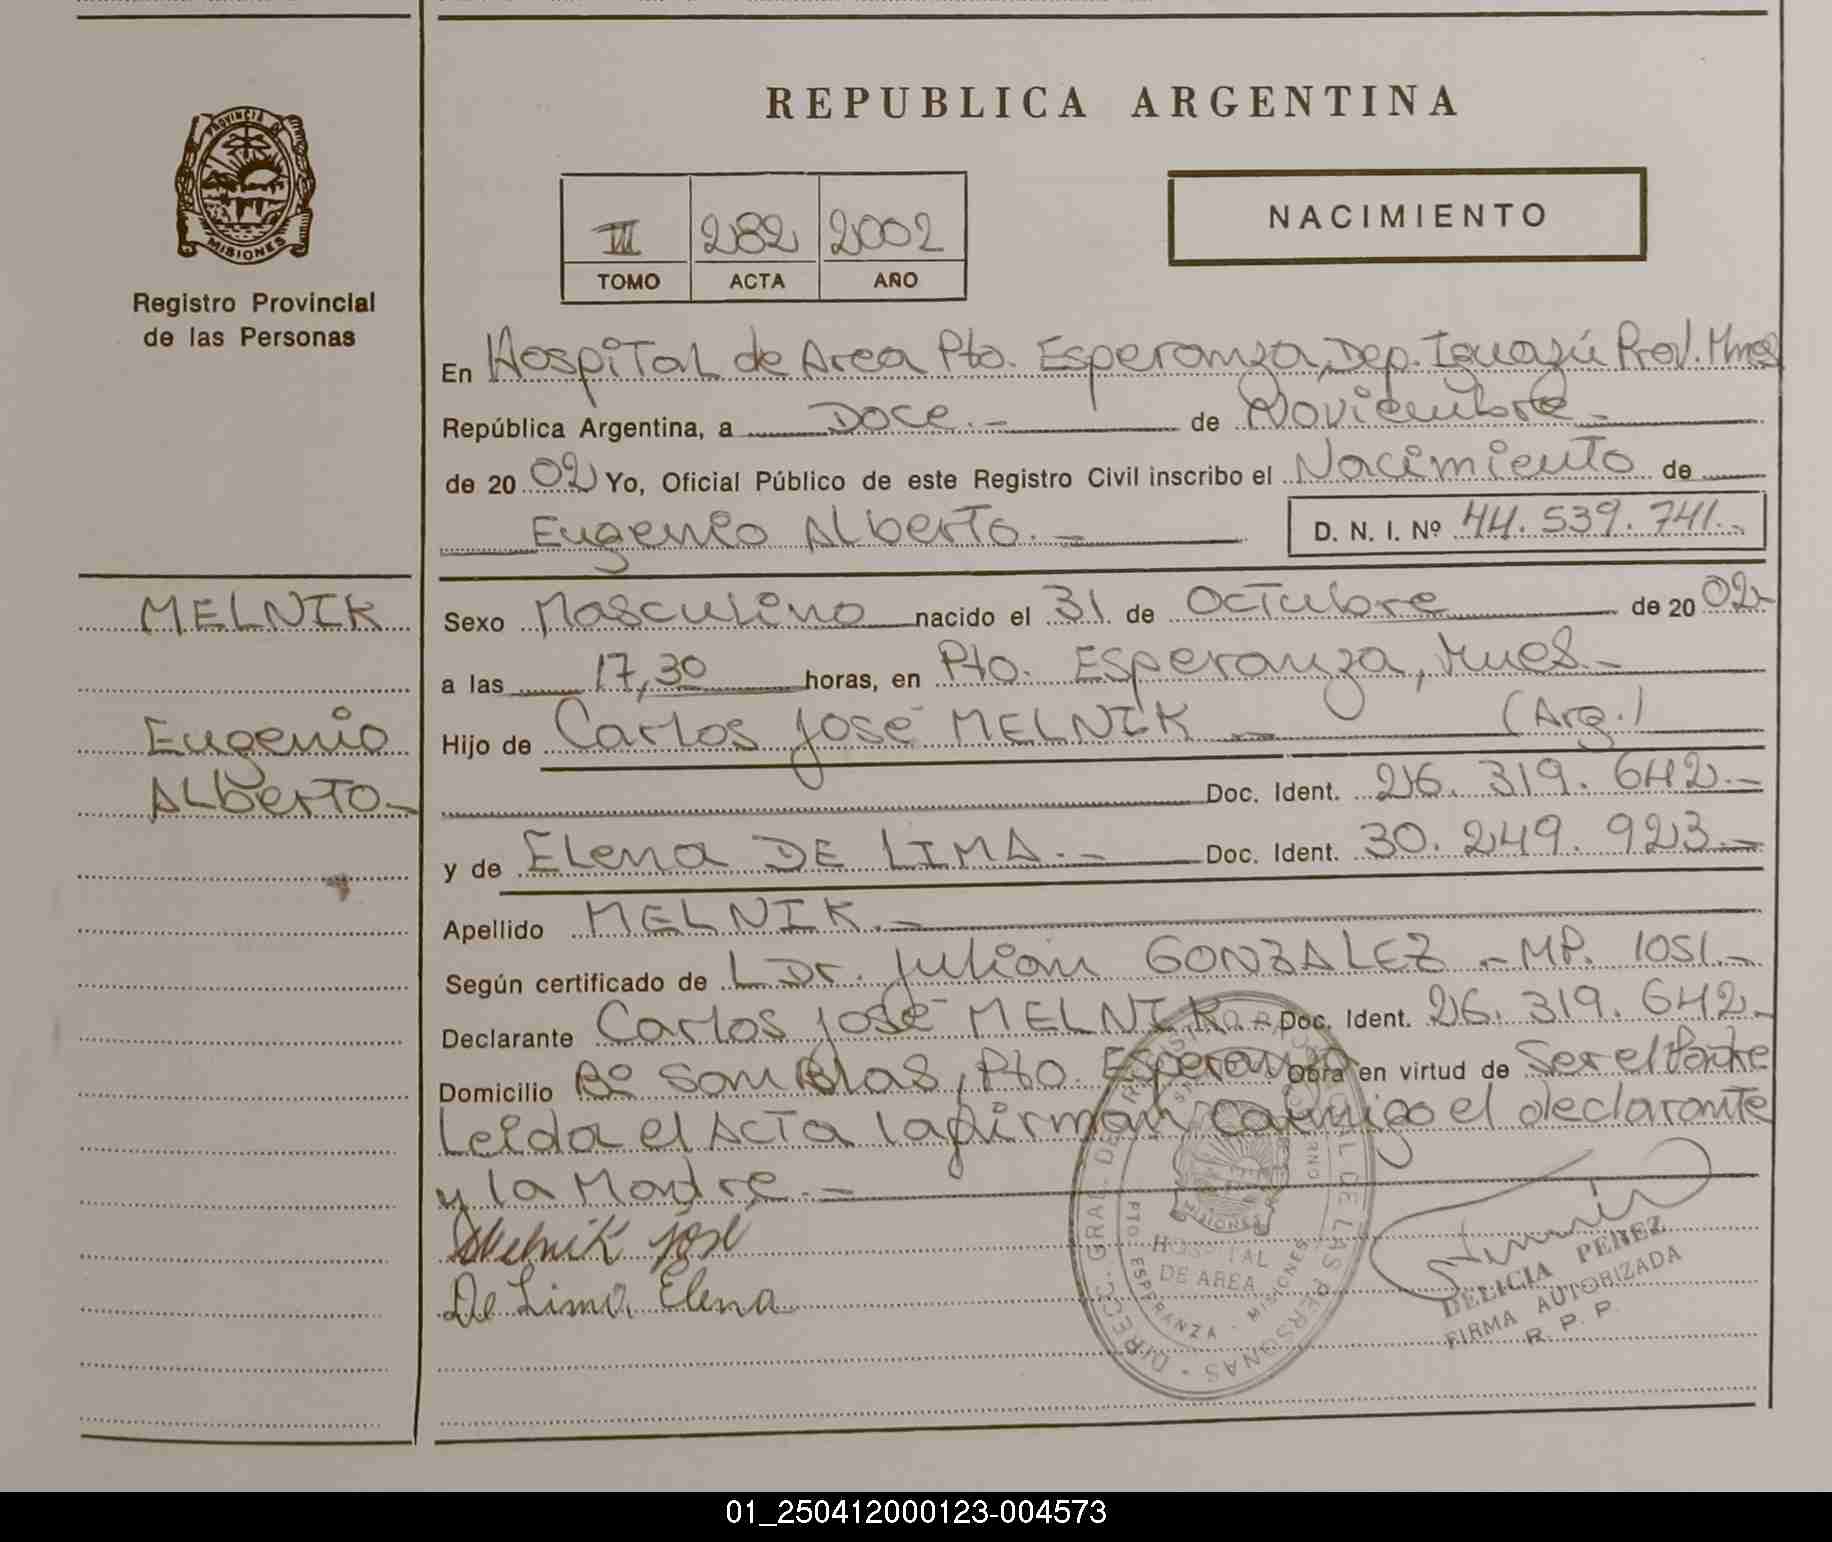 REPUBLICA ARGENTINA
PROVINCIA DE
MISIONES
Registro Provincial
de las Personas
III 282 2002
TOMO ACTA AÑO
NACIMIENTO
En Hospital de Area Pto. Esperanza, Dep. Iguazú Prov. Mnes
República Argentina, a Doce.- de Noviembre.-
de 20 02 Yo, Oficial Público de este Registro Civil inscribo el Nacimiento de
Eugenio Alberto.- D. N. I. Nº 44.539.741.-
MELNIK
Eugenio
Alberto-
Sexo Masculino nacido el 31 de Octubre de 20 02-
a las 17,30 horas, en Pto. Esperanza, Mnes.-
Hijo de Carlos José MELNIK - (Arg.)
Doc. Ident. 26.319.642.-
y de Elena DE LIMA.- Doc. Ident. 30.249.923.-
Apellido MELNIK.-
Según certificado de Dr. Julián GONZALEZ - MP. 1051.-
Declarante Carlos José MELNIK.- Doc. Ident. 26.319.642-
Domicilio Bº San Blas, Pto. Esperanza Obra en virtud de Ser el Padre
Leida el Acta la firman conmigo el declarante
y la Madre.-
Melnik José
De Lima Elena
DIRECC. GRAL. DE REGISTRO PROVINCIAL DE LAS PERSONAS
MISIONES
HOSPITAL
DE AREA
PTO. ESPERANZA - MISIONES
DELICIA PEREZ
FIRMA AUTORIZADA
R. P. P.
01_250412000123-004573